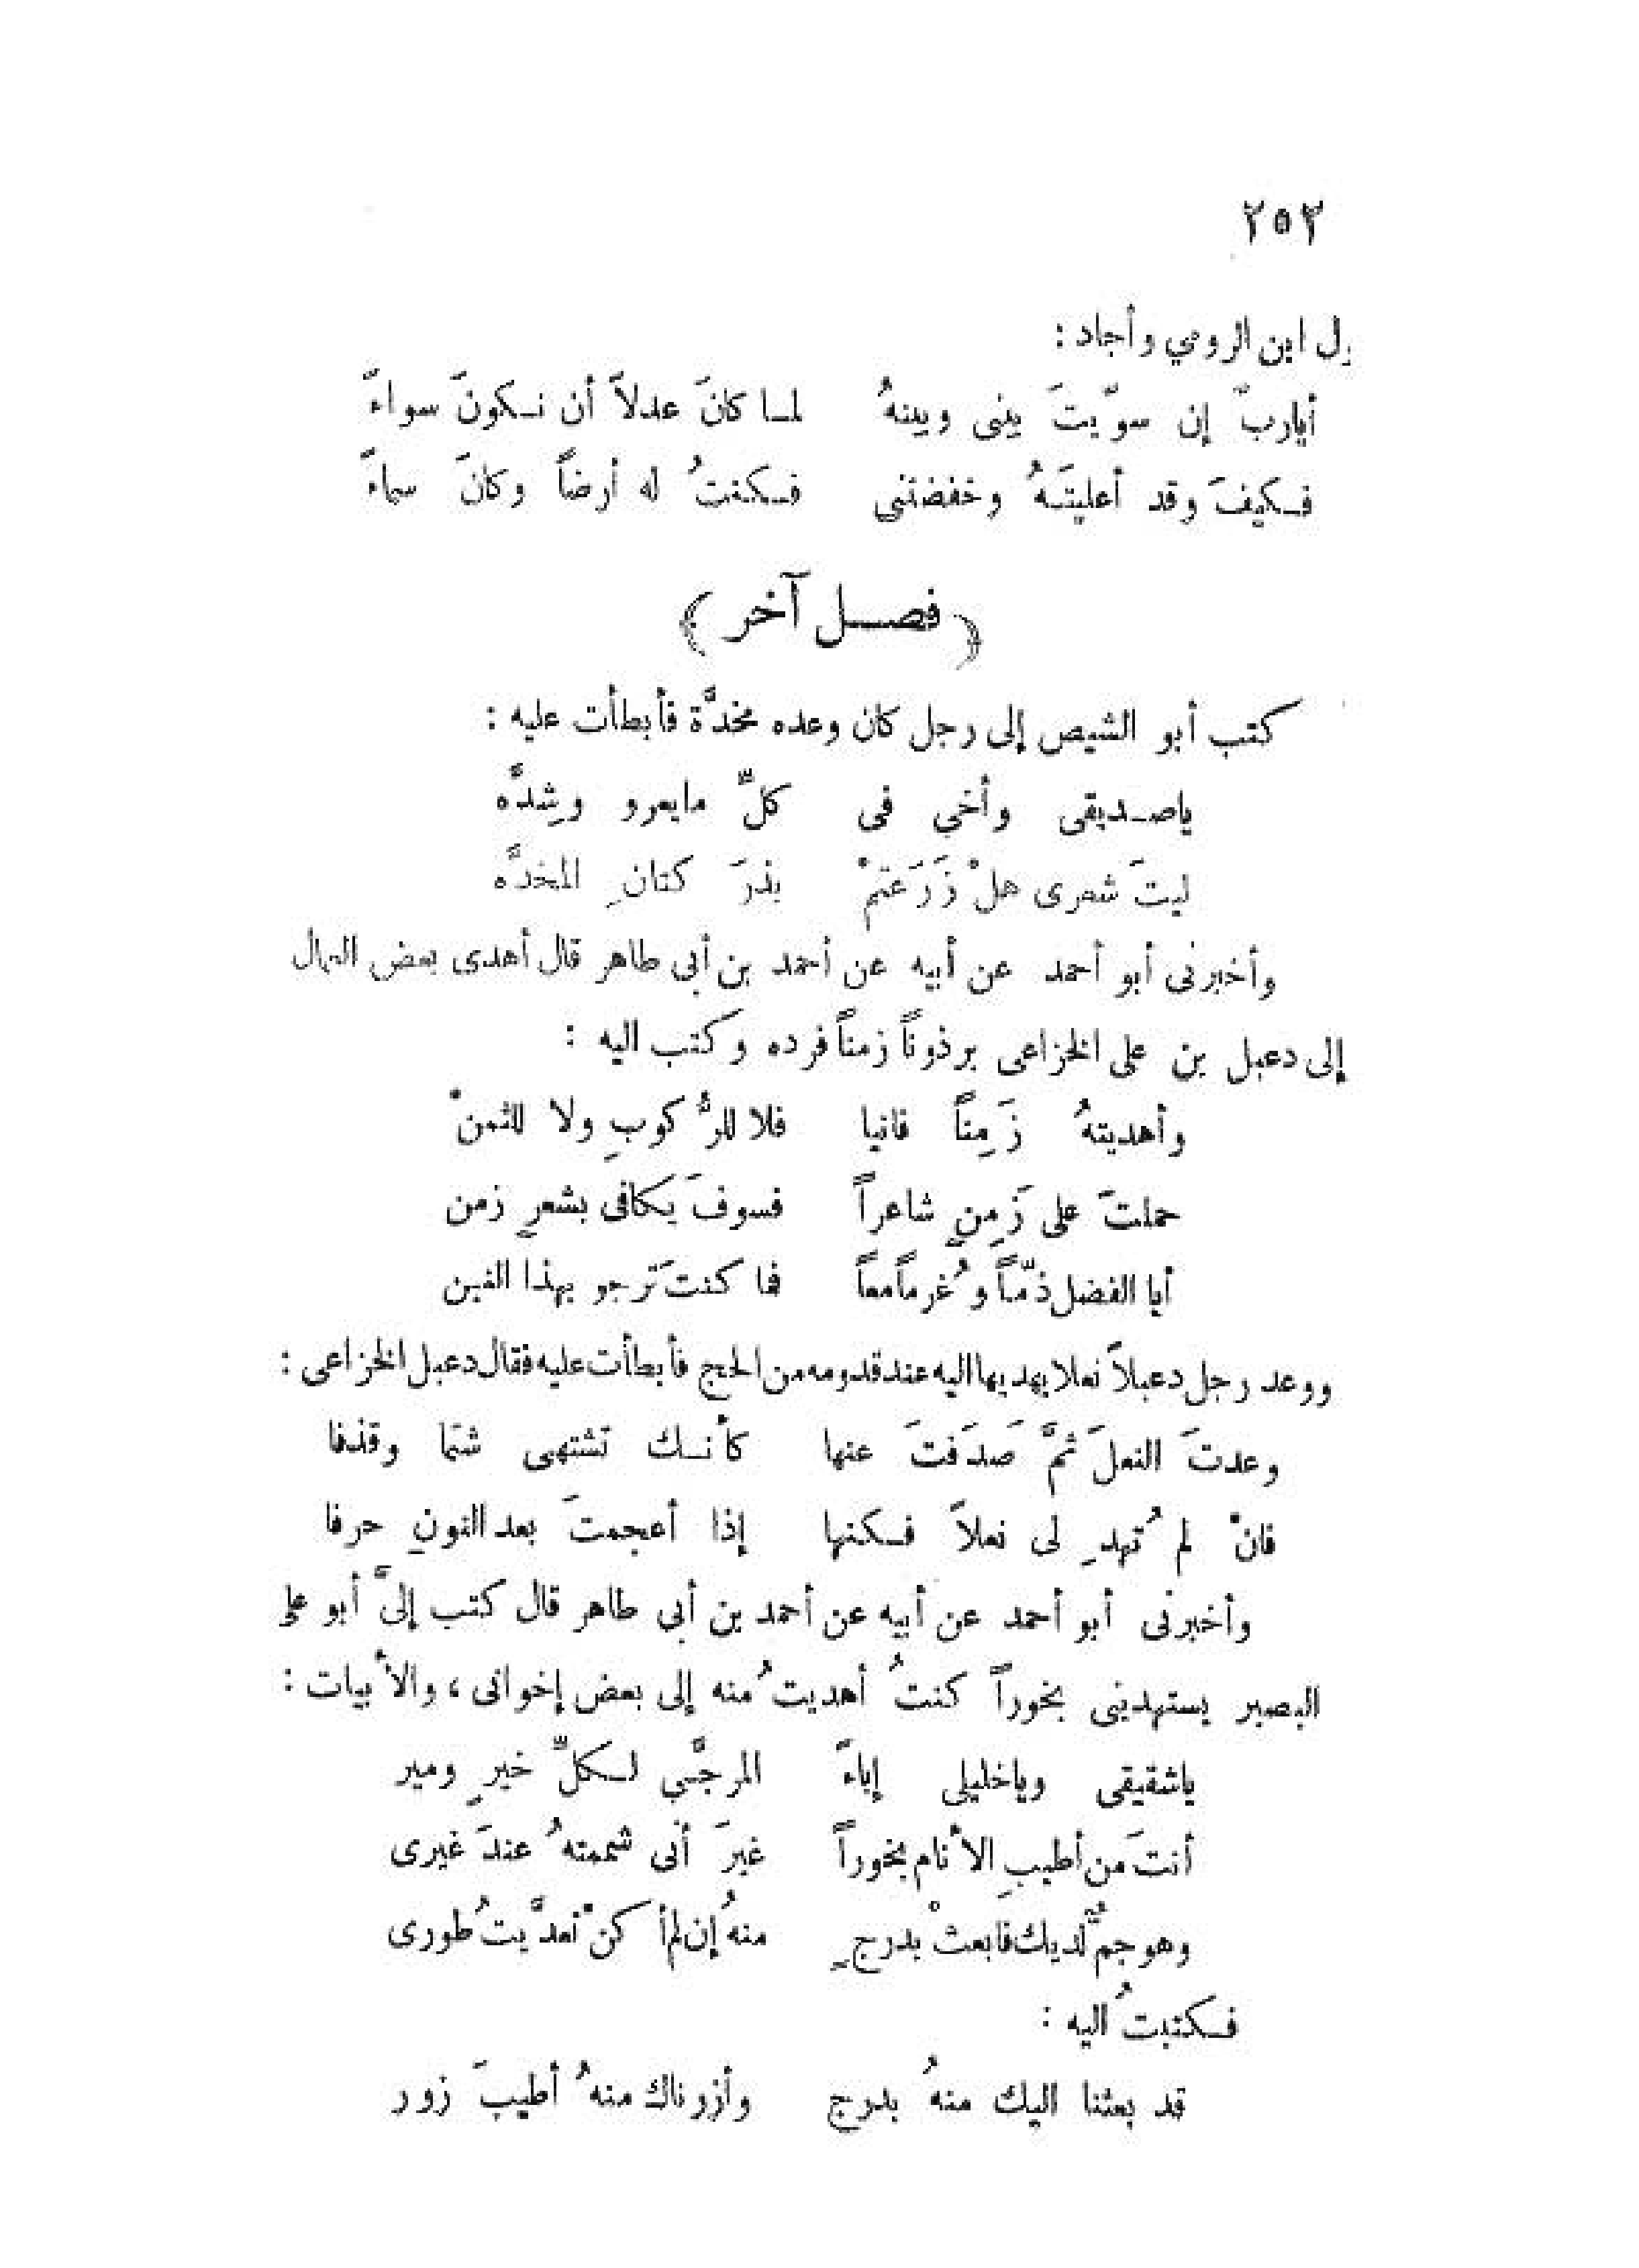 ٢٥٢
ول ابن الرومي وأجاد :
أيارب إن سوّيتَ بيني وبينهُ لمـا كانَ عدلاً أن نـكونَ سواءَ
فـكيفَ وقد أعليتَهُ وخفضتنى فـكنتُ له أرضاً وكانَ سماءَ
﴿ فصـل آخر ﴾
كتب أبو الشيص إلى رجل كان وعده مخدَّة فأبطأت عليه :
ياصـديقى وأخي فى كلِّ مايعرو وشِدَّه
ليتَ شعرى هلْ زَرَعتمْ بذرَ كتانِ المخدَّه
وأخبرنى أبو أحمد عن أبيه عن أحمد بن أبي طاهر قال أهدى بعض العمال
إلى دعبل بن على الخزاعى برذوناً زمناً فرده وكتب اليه :
وأهديتهُ زَمِناً فانيا فلا للرُّكوبِ ولا للثمنْ
حملتَ على زَمِنٍ شاعراً فسوفَ يَكافى بشعرٍ زمن
أبا الفضل ذمّاً وغُرماً معاً فما كنتَ ترجو بهذا الغبن
ووعد رجل دعبلاً نعلا يهديها اليه عند قدومه من الحج فأبطأت عليه فقال دعبل الخزاعى :
وعدتَ النعلَ ثمَّ صَدَفتَ عنها كأنـك تشتهى شتما وقذفا
فانْ لم تُهدِ لى نعلاً فـكنها إذا أعجمتَ بعد النونِ حرفا
وأخبرنى أبو أحمد عن أبيه عن أحمد بن أبى طاهر قال كتب إلىَّ أبو على
البصير يستهدينى بخوراً كنتُ أهديتُ منه إلى بعض إخوانى ، والأبيات :
ياشقيقى وياخليلى إباءً المرجَّى لـكلِّ خيرٍ ومير
أنتَ من أطيبِ الأنام بخوراً غيرَ أنى شممتهُ عندَ غيرى
وهو جمٌّ لديك فابعثْ بدرجٍ منهُ إن لم أكنْ تعدَّيتُ طورى
فـكتبتُ اليه :
قد بعثنا اليك منهُ بدرج وأزرناك منهُ أطيبَ زور